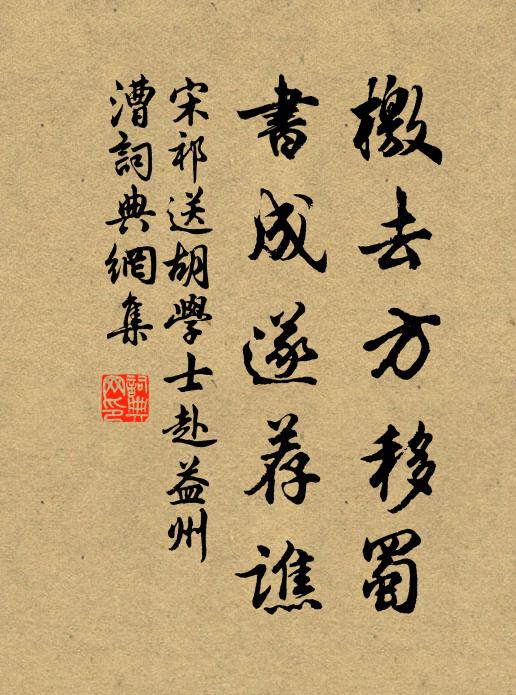 檄去方移蜀
書成遂荐譙
宋祁送胡學士赴益州
漕詞典網集
詞典
网印